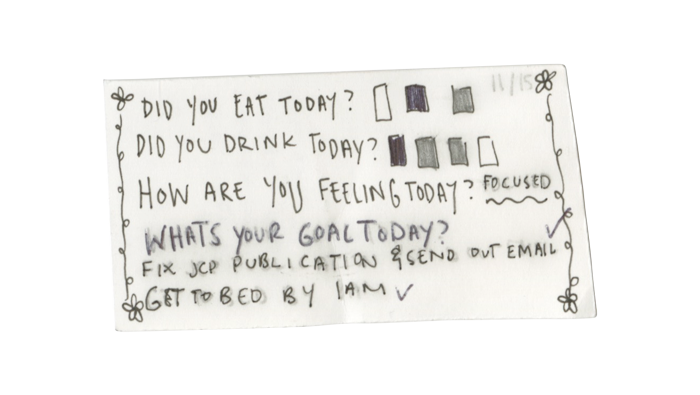 11/15
DID YOU EAT TODAY?
DID YOU DRINK TODAY?
HOW ARE YOU FEELING TODAY? FOCUSED
WHATS YOUR GOAL TODAY?
FIX JCP PUBLICATION & SEND OUT EMAIL
GET TO BED BY 1AM